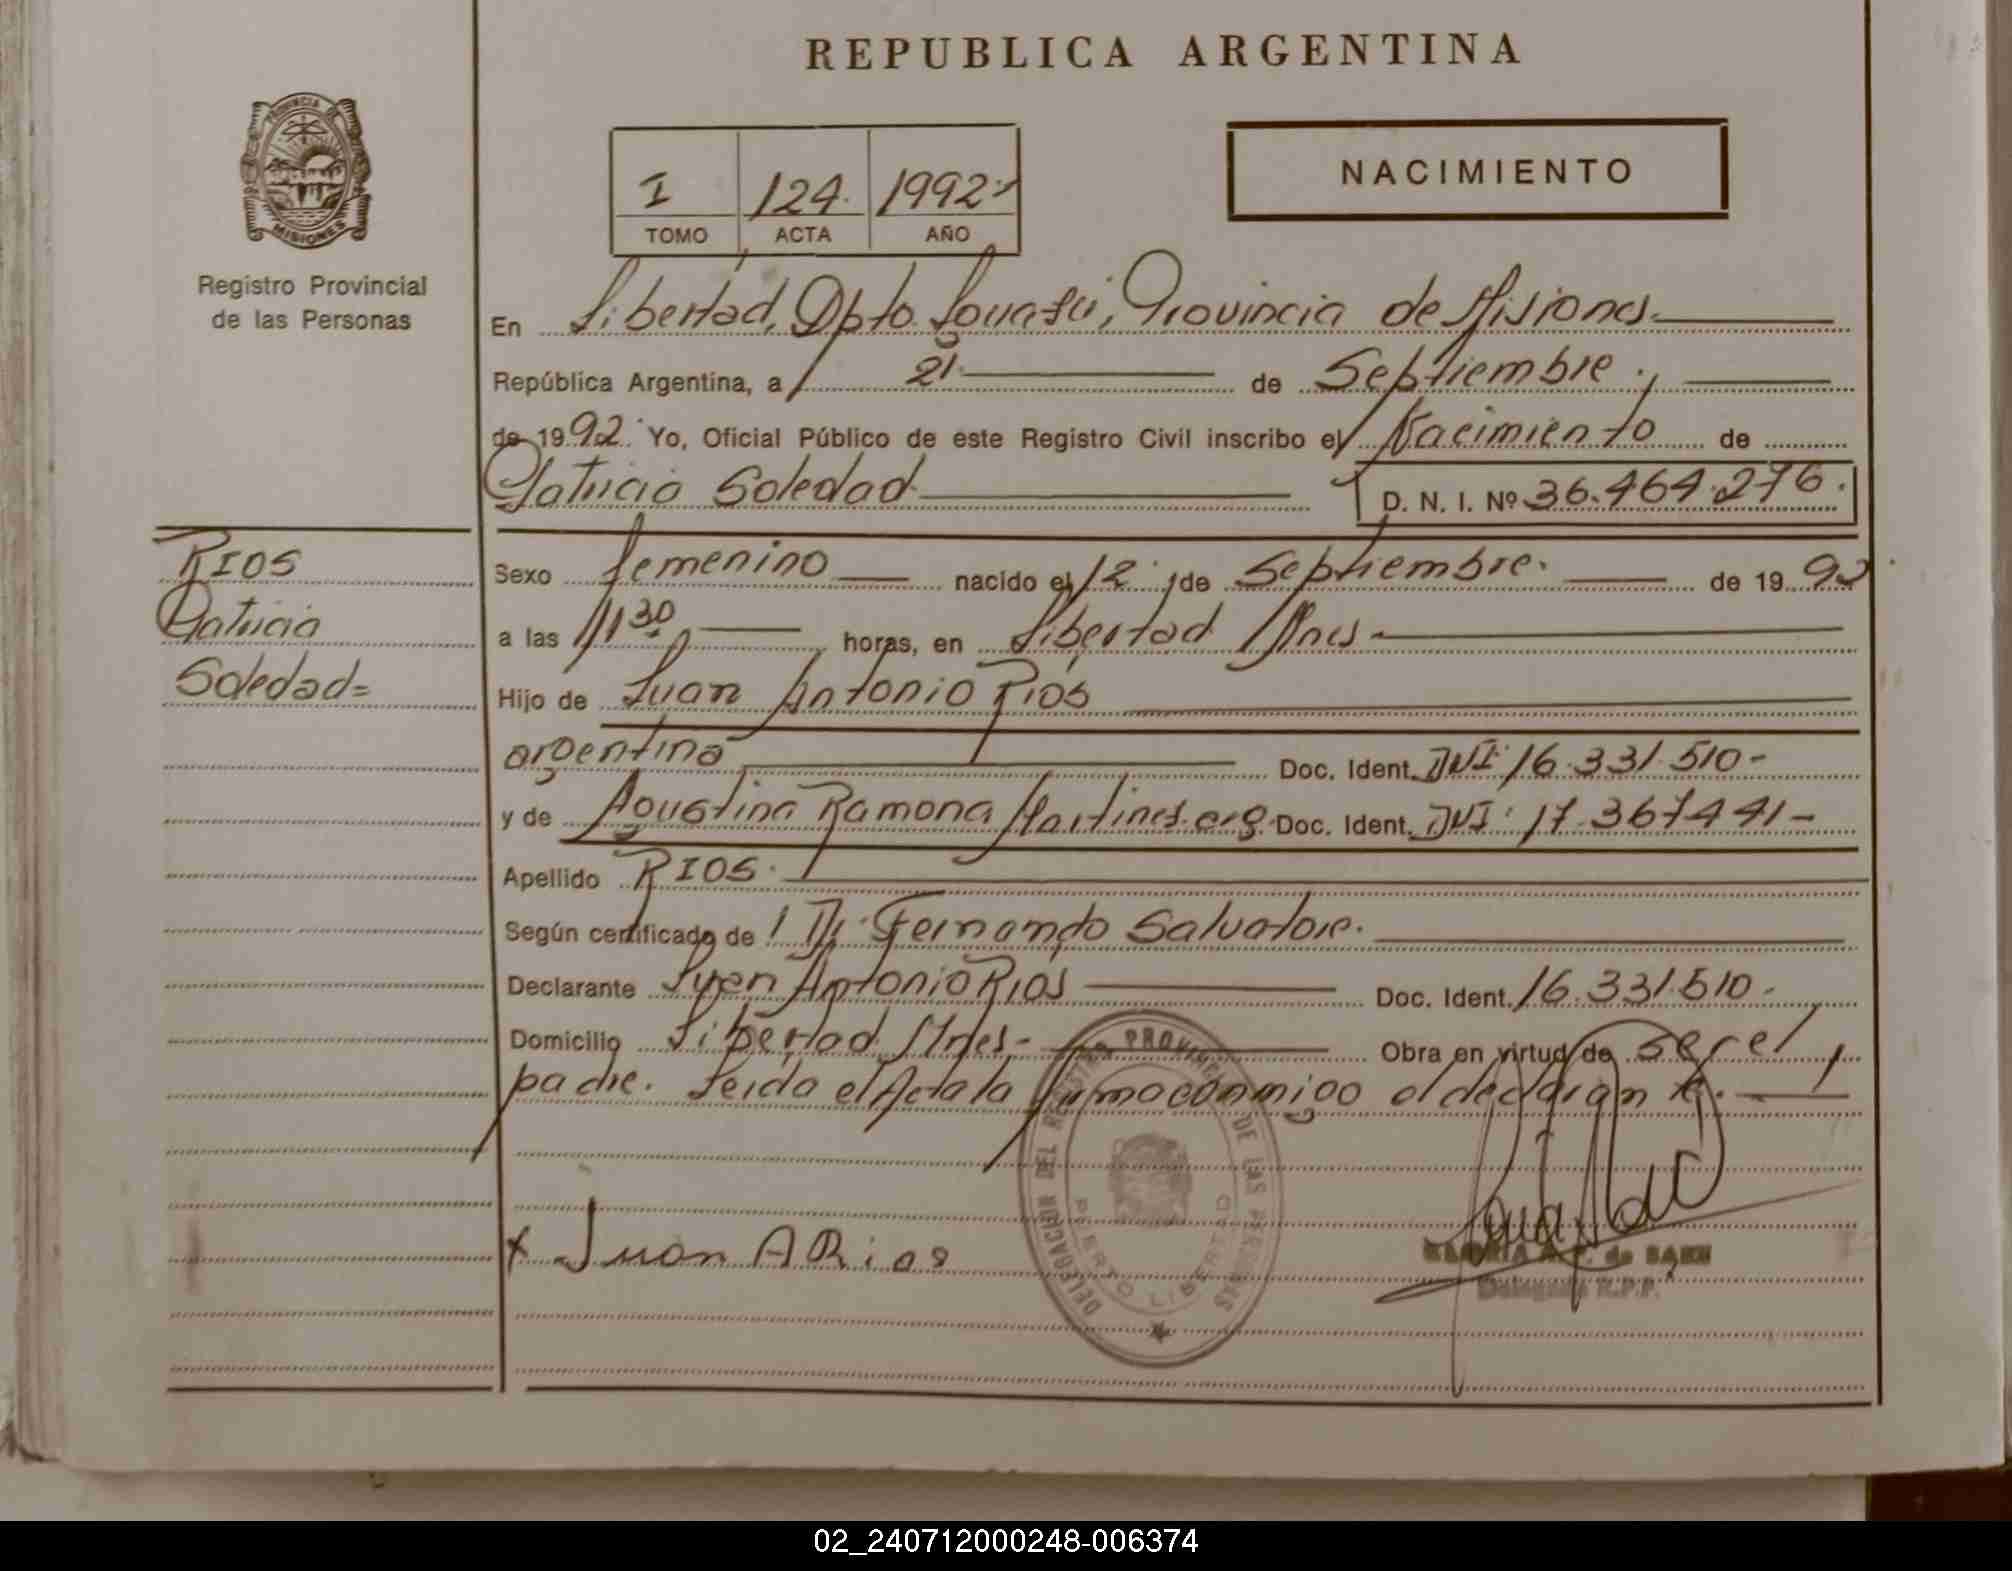 REPUBLICA ARGENTINA
PROVINCIA DE
MISIONES
Registro Provincial
de las Personas
I 124. 1992
TOMO ACTA AÑO
NACIMIENTO
En Libertad, Dpto. Iguazú, Provincia de Misiones
República Argentina, a 21 de Septiembre
de 1992. Yo, Oficial Público de este Registro Civil inscribo el Nacimiento de
Patricia Soledad D. N. I. Nº 36.464.276.
RIOS
Patricia
Soledad=
Sexo femenino nacido el 12 de Septiembre. de 1992
a las 11 30 horas, en Libertad Mnes
Hijo de Juan Antonio Rios
argentina Doc. Ident. DNI: 16.331.510-
y de Agustina Ramona Martines. arg. Doc. Ident. DNI: 17.367441-
Apellido RIOS.
Según certificado de Dr. Fernando Salvatore.
Declarante Juan Antonio Rios Doc. Ident. 16.331.510-
Domicilio Libertad Mnes- Obra en virtud de ser el
padre. Leida el Acta la firma conmigo el declarante.
DELEGACION DEL REGISTRO PROVINCIAL DE LAS PERSONAS
PUERTO LIBERTAD
x Juan A Rios
de
Delegada R.P.P.
02_240712000248-006374